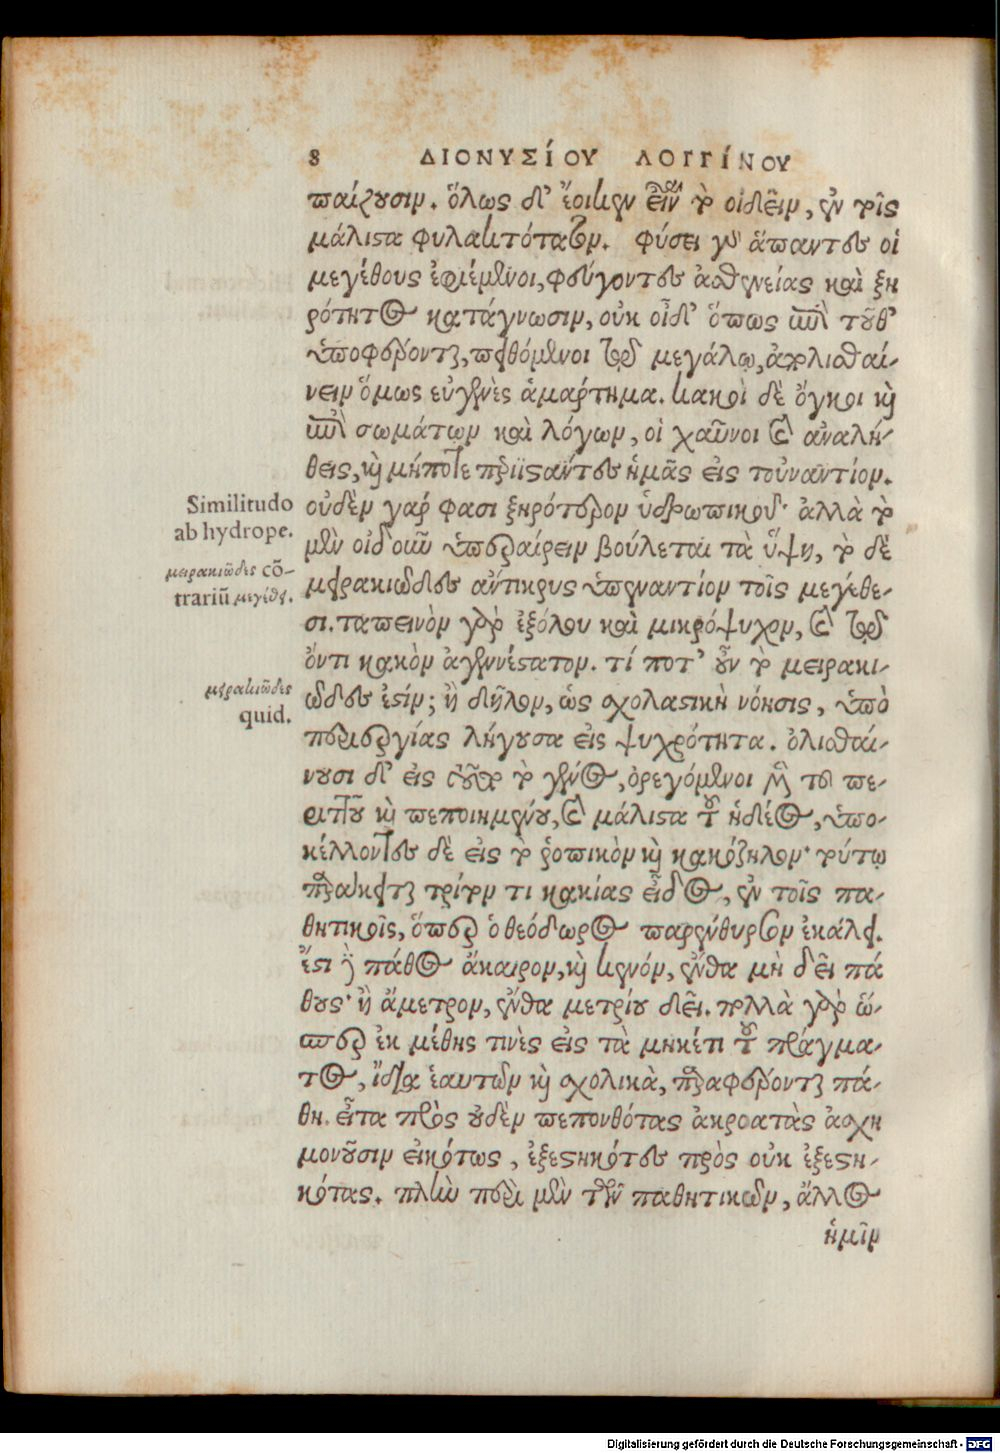 8 ΔΙΟΝΥΣίΟΥ ΛΟΓΓίΝΟΥ
παίζουσιν. ὅλως δ' ἔοικεν εἶναι τὸ οἰδεῖν, ἐν τοῖς
μάλιστα φυλακτότατον. φύσει γὰρ ἅπαντες οἱ
μεγέθους ἐφιέμενοι, φεύγοντες ἀσθενείας καὶ ξη
ρότητος κατάγνωσιν, οὐκ οἶδ' ὅπως ἐπὶ τοῦθ'
ὑποφέρονται, πειθόμενοι τῷ μεγάλῳ, ἀπολισθαί-
νειν ὅμως εὐγενὲς ἁμάρτημα. κακοὶ δὲ ὄγκοι καὶ
ἐπὶ σωμάτων καὶ λόγων, οἱ χαῦνοι καὶ ἀναλή-
θεις, καὶ μήποτε περιϊσάντες ἡμᾶς εἰς τοὐναντίον.
οὐδὲν γάρ φασι ξηρότερον ὑδρωπικοῦ· ἀλλὰ τὸ
μὲν οἰδοῦν ὑπεραίρειν βούλεται τὰ ὕψη, τὸ δὲ
μειρακιῶδες ἄντικρυς ὑπεναντίον τοῖς μεγέθε-
σι. ταπεινὸν γὰρ ἐξόλου καὶ μικρόψυχον, καὶ τῷ
ὄντι κακὸν ἀγεννέστατον. τί ποτ' οὖν τὸ μειρακι-
ῶδες ἐστίν; ἢ δῆλον, ὡς σχολαστικὴ νόησις, ὑπὸ
περιεργίας λήγουσα εἰς ψυχρότητα. ὀλισθαί-
νουσι δ' εἰς τοῦτο τὸ γένος, ὀρεγόμενοι μὲν τοῦ πε-
ριττοῦ καὶ πεποιημένου, καὶ μάλιστα τοῦ ἡδέος, ὑπο-
κέλλοντες δὲ εἰς τὸ ῥοπικὸν καὶ κακόζηλον· τούτῳ
παράκειται τρίτον τι κακίας εἶδος, ἐν τοῖς πα-
θητικοῖς, ὅπερ ὁ θεόδωρος παρένθυρσον ἐκάλει.
ἔστι δὲ πάθος ἄκαιρον, καὶ κενόν, ἔνθα μὴ δεῖ πά
θους· ἢ ἄμετρον, ἔνθα μετρίου δεῖ. πολλὰ γὰρ ὥ-
σπερ ἐκ μέθης τινὲς εἰς τὰ μηκέτι τοῦ πράγμα-
τος, ἴδια ἑαυτῶν καὶ σχολικὰ, παραφέρονται πά-
θη. εἶτα πρὸς οὐδὲν πεπονθότας ἀκροατὰς ἀσχη
μονοῦσιν εἰκότως, ἐξεστηκότες πρὸς οὐκ ἐξεστη-
κότας. πλὴν περὶ μὲν τῶν παθητικῶν, ἄλλος
ἡμῖν
Similitudo
ab hydrope.
μειρακιῶδες cō-
trariū μεγέθει.
μειρακιῶδες
quid.
Digitalisierung gefördert durch die Deutsche Forschungsgemeinschaft - DFG